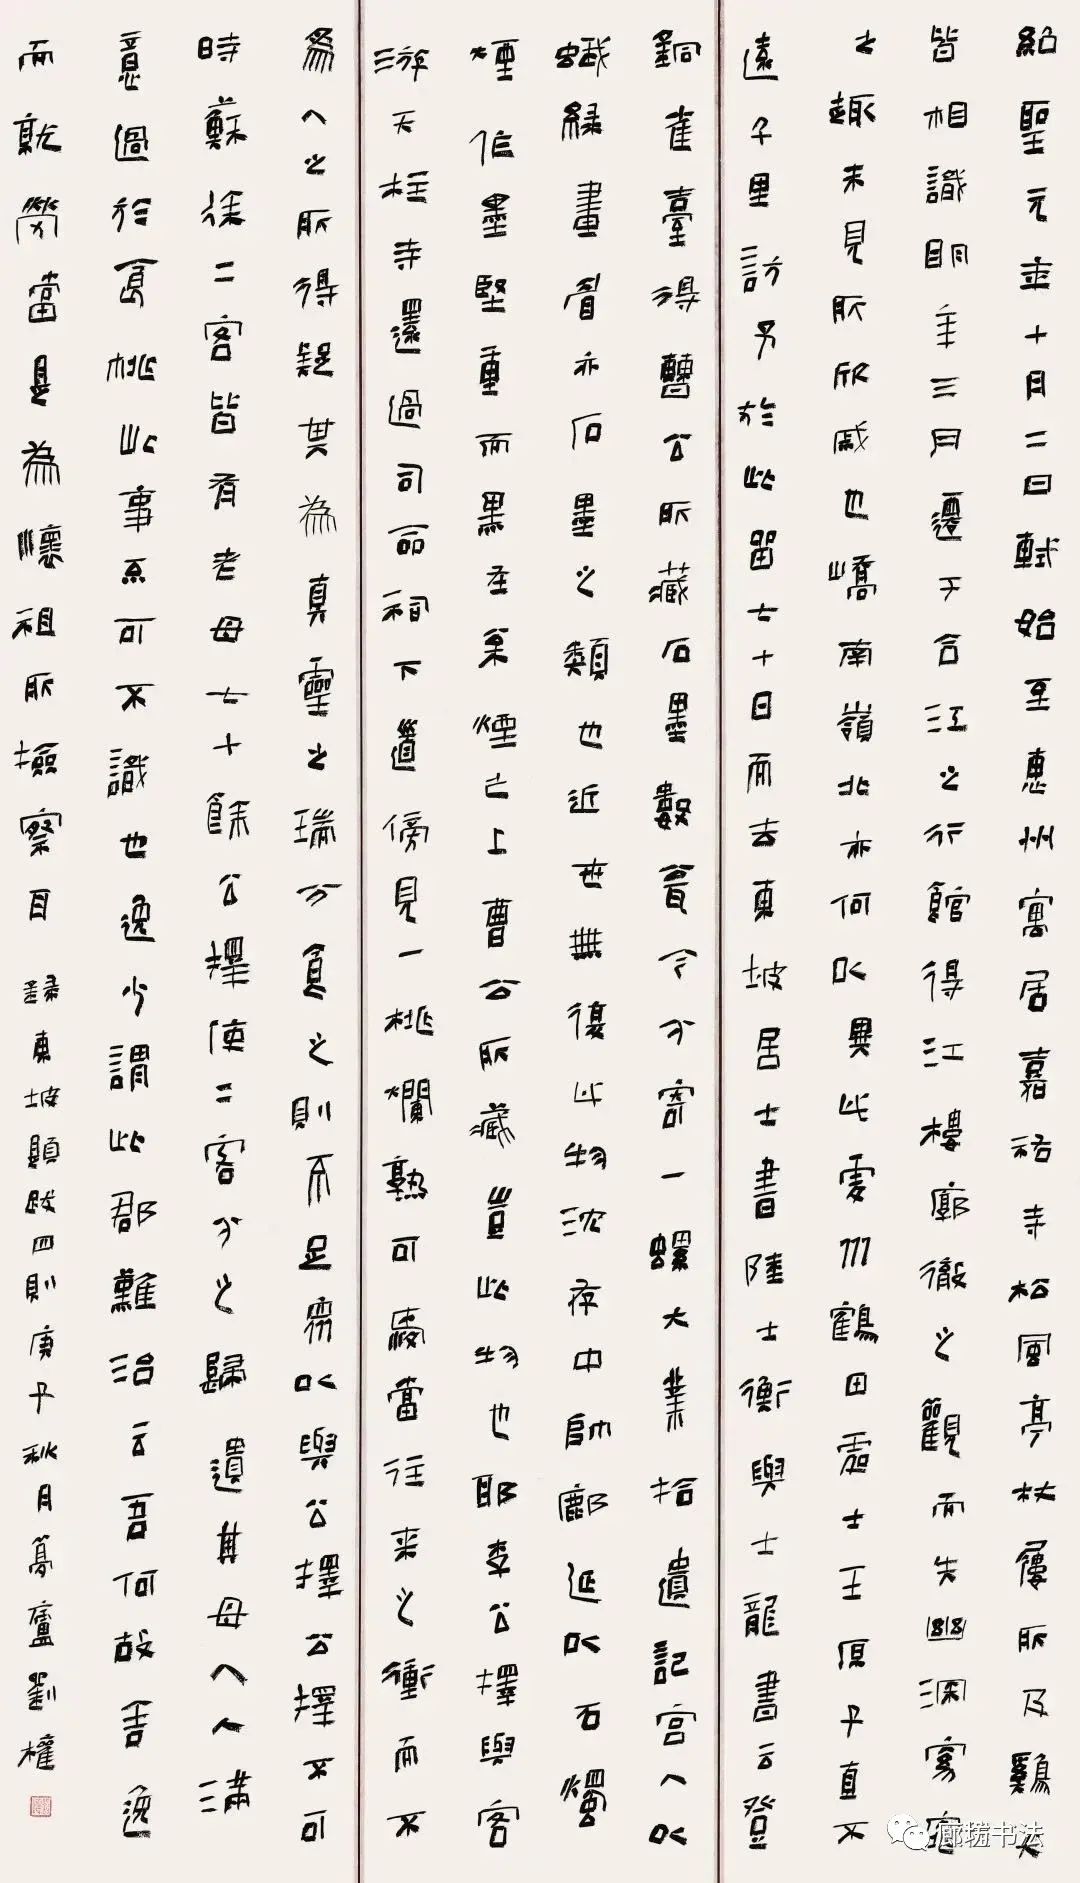 紹聖元年十月二日軾始至惠州寓居嘉祐寺松風亭杖屨所及鷄犬
皆相識明年三月遷于合江之行館得江樓廓徹之觀而失幽深窈窕
之趣未見所欣戚也嶠南嶺北亦何以異此虔州鶴田處士王原子直不
遠千里訪予於此留七十日而去東坡居士書陸士衡與士龍書云登
銅雀臺得曹公所藏石墨數甕今分寄一螺大業拾遺記宮人以
蛾綠畫眉亦石墨之類也近世無復此物沈存中帥鄜延以石燭
煙作墨堅重而黑在松煙之上曹公所藏豈此物也耶李公擇與客
游天柱寺還過司命祠下道傍見一桃爛熟可愛當往來之衝而不
為人之所得疑其為真靈之瑞分食之則不足眾以與公擇公擇不可
時蘇徐二客皆有老母七十餘公擇使二客分之歸遺其母人人滿
意過於食桃此事不可不識也逸少謂此郡難治云吾何故舍逸
而就勞當是為懷祖所檢察耳 錄東坡題跋四則庚子秋月篤廬劉權